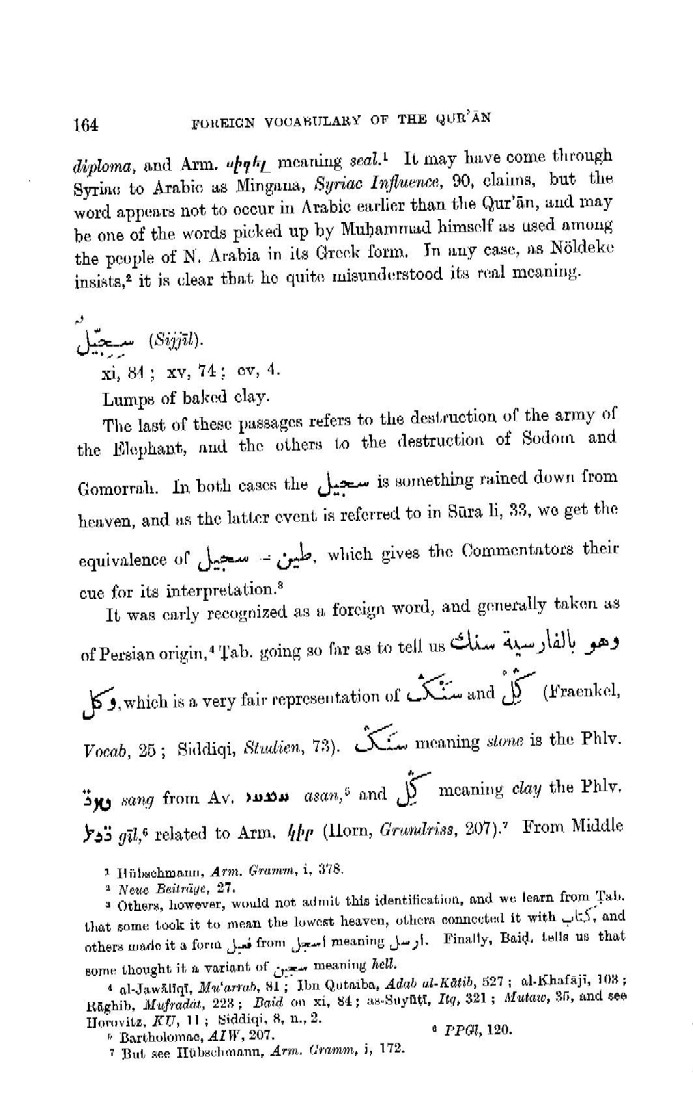 164 FOREIGN VOCABULARY OF THE QUR'ĀN
diploma, and Arm. սիգել meaning seal.¹ It may have come through
Syriac to Arabic as Mingana, Syriac Influence, 90, claims, but the
word appears not to occur in Arabic earlier than the Qur'ān, and may
be one of the words picked up by Muḥammad himself as used among
the people of N. Arabia in its Greek form. In any case, as Nöldeke
insists,² it is clear that he quite misunderstood its real meaning.
سِجِّيلٌ (Sijjīl).
xi, 84 ; xv, 74 ; cv, 4.
Lumps of baked clay.
The last of these passages refers to the destruction of the army of
the Elephant, and the others to the destruction of Sodom and
Gomorrah. In both cases the سجيل is something rained down from
heaven, and as the latter event is referred to in Sūra li, 33, we get the
equivalence of سجيل = طين, which gives the Commentators their
cue for its interpretation.³
It was early recognized as a foreign word, and generally taken as
of Persian origin,⁴ Ṭab. going so far as to tell us وهو بالفارسية سنك
وكل, which is a very fair representation of سَنْگ and گُلْ (Fraenkel,
Vocab, 25 ; Siddiqi, Studien, 73). سنگ meaning stone is the Phlv.
sang from Av. asan,⁵ and گل meaning clay the Phlv.
gīl,⁶ related to Arm. կիր (Horn, Grundriss, 207).⁷ From Middle
¹ Hübschmann, Arm. Gramm, i, 378.
² Neue Beiträge, 27.
³ Others, however, would not admit this identification, and we learn from Ṭab.
that some took it to mean the lowest heaven, others connected it with كتاب, and
others made it a form فعيل from اسجل meaning ارسل. Finally, Baiḍ. tells us that
some thought it a variant of سجين meaning hell.
⁴ al-Jawālīqī, Mu'arrab, 81 ; Ibn Qutaiba, Adab al-Kātib, 527 ; al-Khafājī, 103 ;
Rāghib, Mufradāt, 223 ; Baid on xi, 84 ; as-Suyūṭī, Itq, 321 ; Mutaw, 35, and see
Horovitz, KU, 11 ; Siddiqi, 8, n., 2.
⁵ Bartholomae, AIW, 207. ⁶ PPGl, 120.
⁷ But see Hübschmann, Arm. Gramm, i, 172.